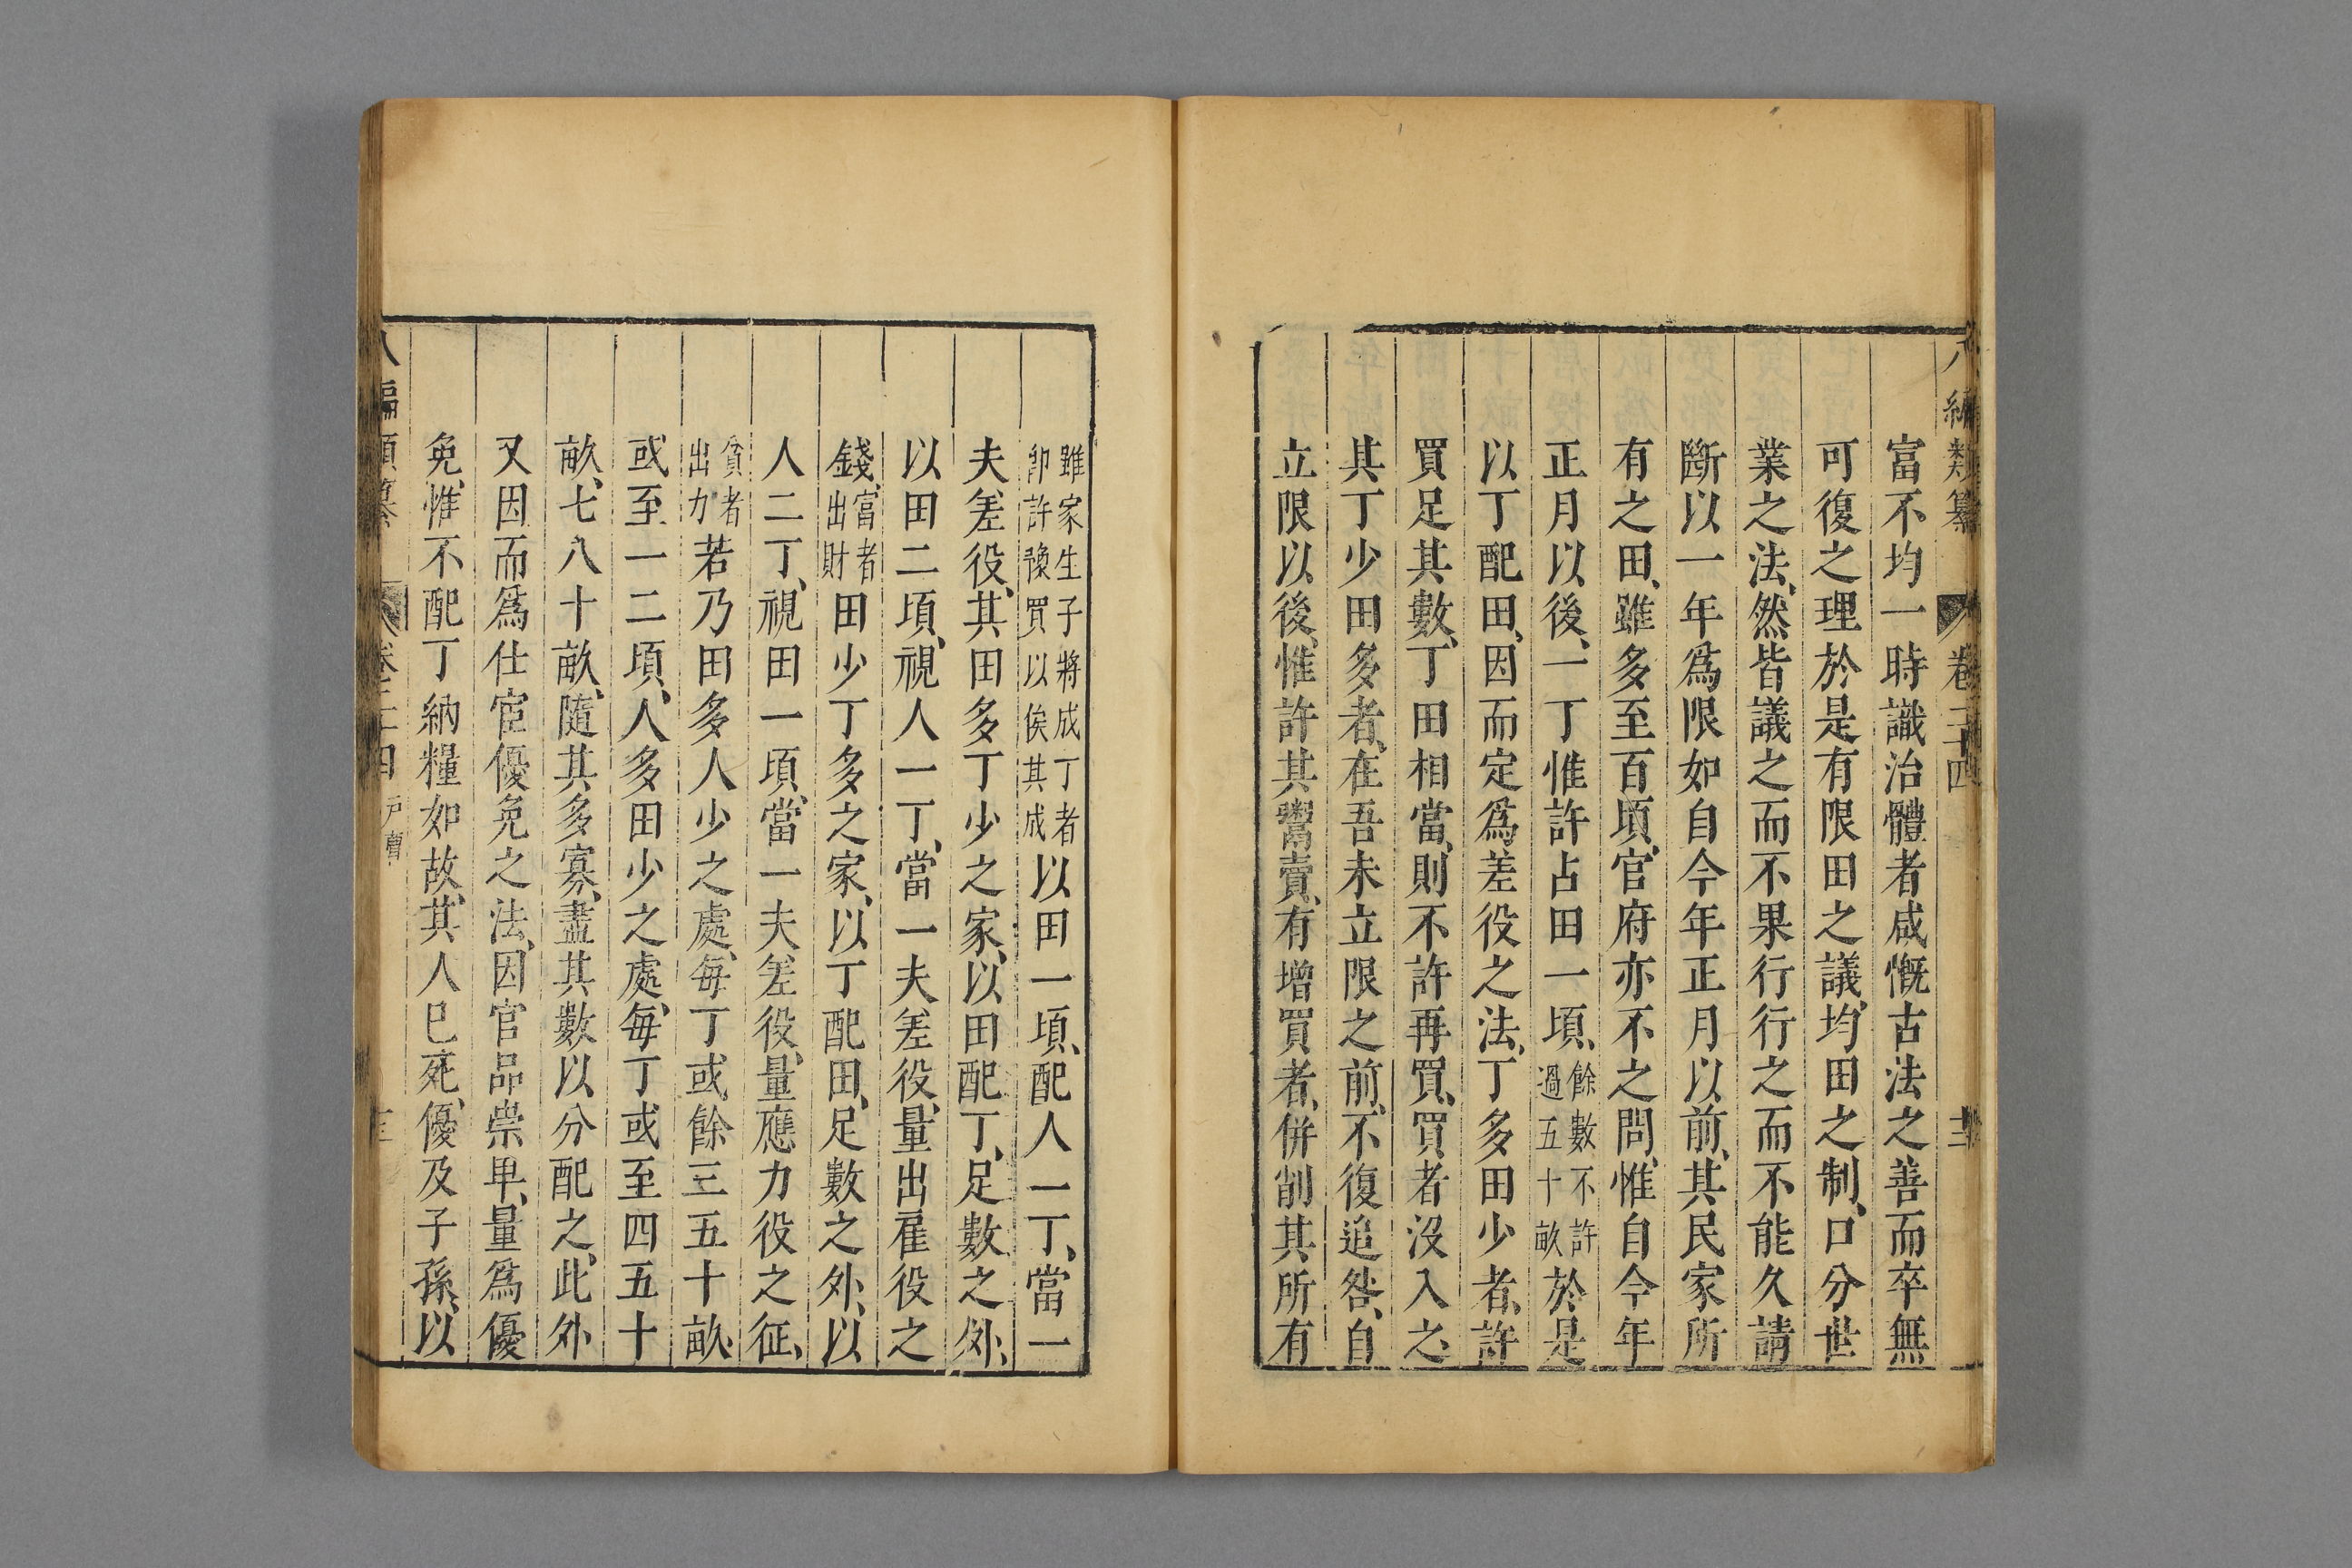 八編類纂 卷三十四
富不均一時識治體者咸慨古法之善而卒無
可復之理於是有限田之議、均田之制、口分世
業之法、然皆議之而不果行行之而不能久請
斷以一年爲限如自今年正月以前、其民家所
有之田、雖多至百頃、官府亦不之問、惟自今年
正月以後、一丁惟許占田一頃、餘數不許過五十畝於是
以丁配田、因而定爲差役之法、丁多田少者、許
買足其數、丁田相當、則不許再買、買者沒入之、
其丁少田多者、在吾未立限之前、不復追咎、自
立限以後、惟許其鬻賣、有增買者、併削其所有
雖家生子將成丁者卽許豫買以俟其成以田一頃、配人一丁、當一
夫差役、其田多丁少之家、以田配丁、足數之外、
以田二頃、視人一丁、當一夫差役、量出雇役之
錢、富者出財田少丁多之家、以丁配田、足數之外、以
人二丁、視田一頃、當一夫差役、量應力役之征、
貧者出力若乃田多人少之處、每丁或餘三五十畝、
或至一二頃、人多田少之處、每丁或至四五十
畝、七八十畝、隨其多寡、盡其數以分配之、此外
又因而爲仕宦優免之法、因官品崇卑、量爲優
免、惟不配丁納糧如故、其人已死、優及子孫、以
八編類纂 卷三十四 戶曹